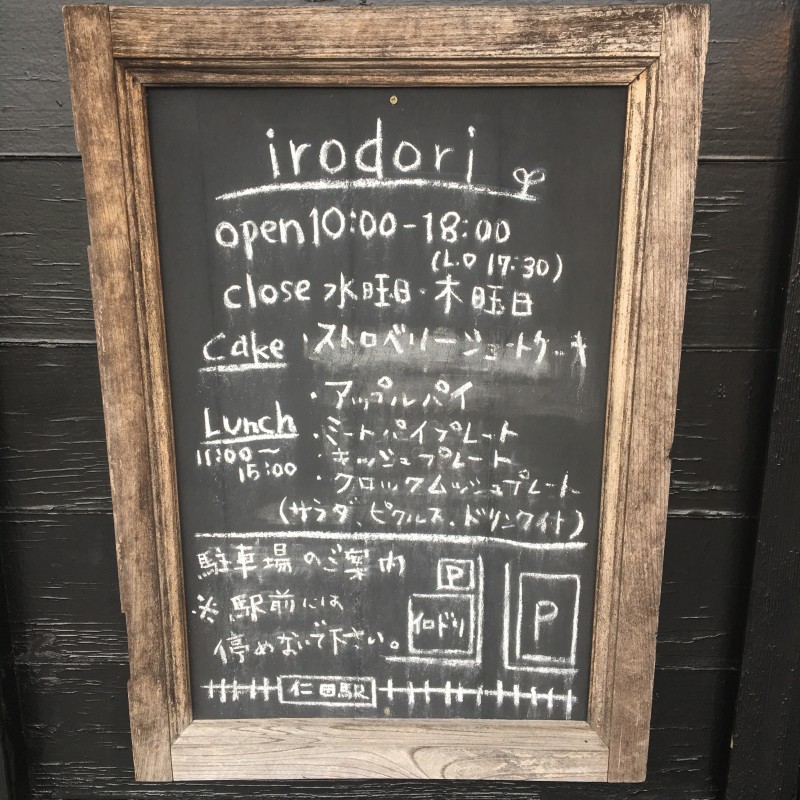 irodori
open 10:00-18:00
(L.O 17:30)
close 水曜日・木曜日
Cake ・ストロベリーショートケーキ
・アップルパイ
Lunch ・ミートパイプレート
11:00〜 ・キッシュプレート
15:00 ・クロックムッシュプレート
(サラダ、ピクルス、ドリンク付)
駐車場のご案内
※駅前には
停めないで下さい。
P
イロドリ
P
仁田駅